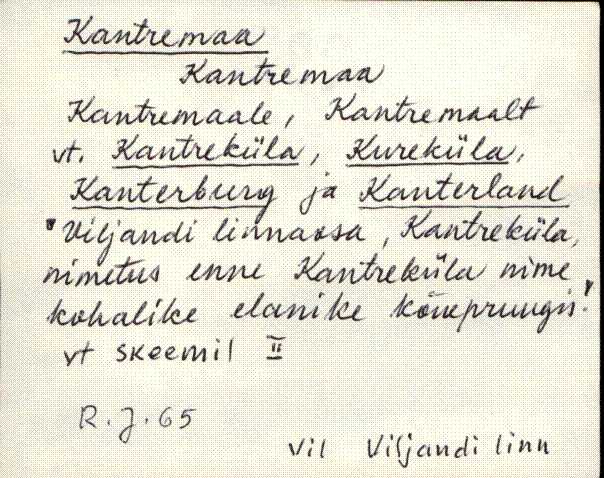 Kantremaa
Kantremaa
Kantremaale, Kantremaalt
vt. Kantreküla, Kureküla,
Kanterburg ja Kanterland
"Viljandi linnaosa, Kantreküla,
nimetus enne Kantreküla nime
kohalike elanike kõnepruugis."
vt skeemil II
R. J. 65
Vil Viljandi linn